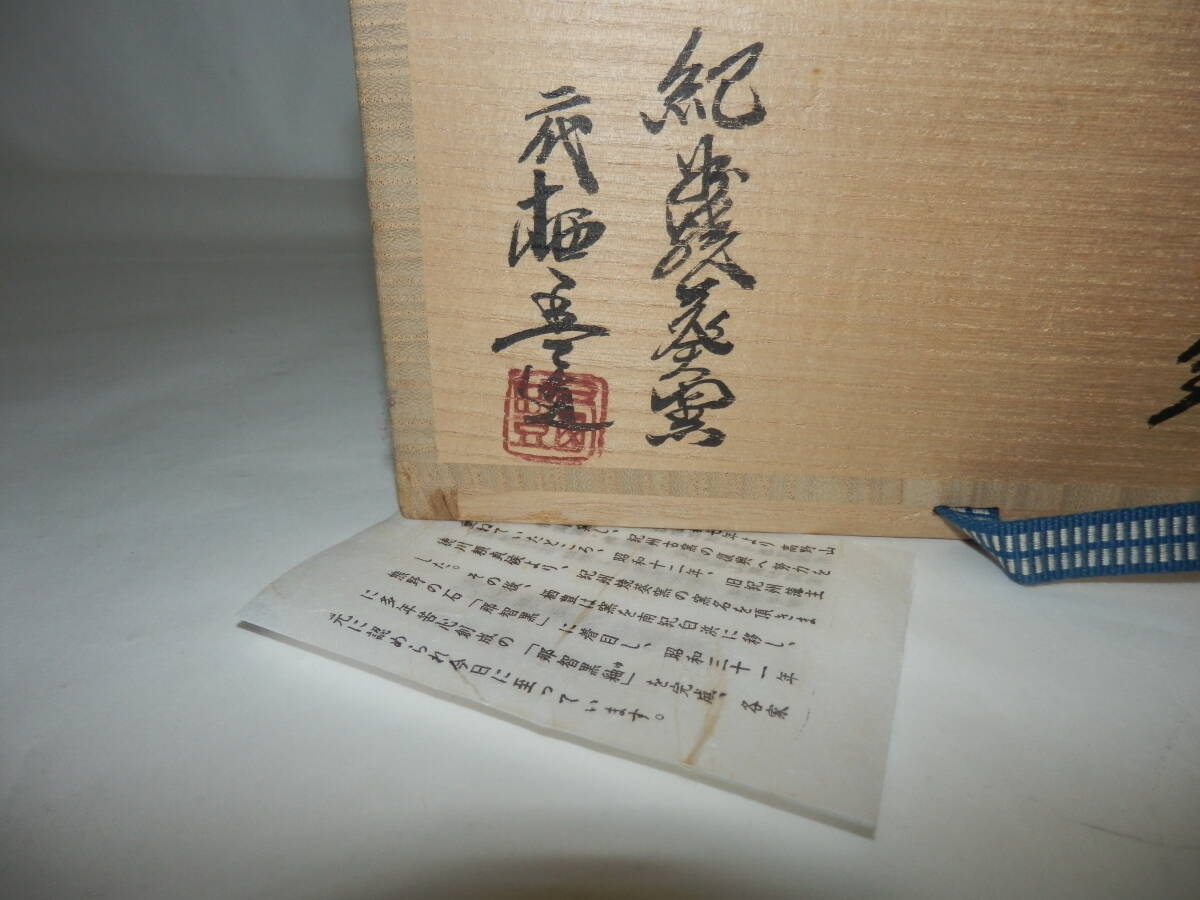 紀州焼葵窯
二代 栖豊造
より 高野山
し、紀州古窯の復興へ努力を
重ねていたところ、昭和十二年、旧紀州藩主
徳川頼貞候より、紀州焼葵窯の窯名を頂きま
した。その後、栖豊は窯を南紀白浜に移し、
熊野の石「那智黒」に着目し、昭和三十一年
に多年苦心創成の「那智黒釉」を完成、各家
元に認められ今日に至っています。